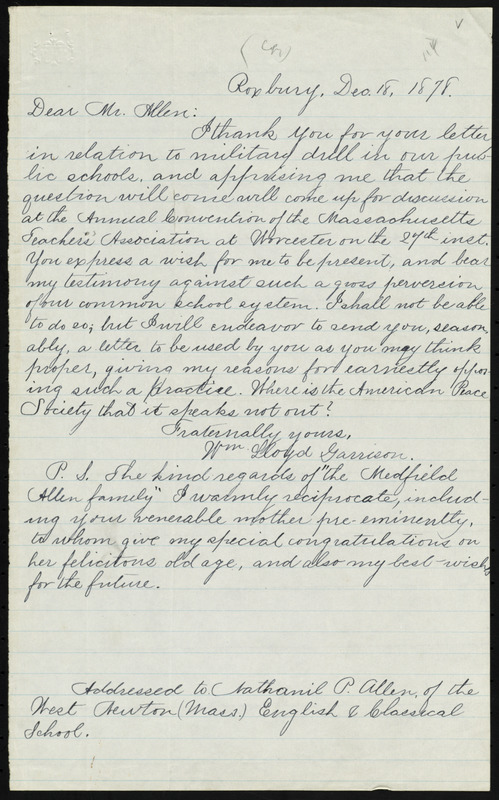 Roxbury, Dec. 18, 1878.
Dear Mr. Allen:
I thank you for your letter
in relation to military drill in our pub-
lic schools, and apprising me that the
question will come will come up for discussion
at the Annual Convention of the Massachusetts
Teachers' Association at Worcester on the 27th inst.
You express a wish for me to be present, and bear
my testimony against such a gross perversion
of our common school system. I shall not be able
to do so; but I will endeavor to send you, season-
ably, a letter to be used by you as you may think
proper, giving my reasons for earnestly oppos-
ing such a practice. Where is the American Peace
Society that it speaks not out?
Fraternally yours,
Wm Lloyd Garrison.
P. S. The kind regards of "the Medfield
Allen family" I warmly reciprocate, includ-
ing your venerable mother pre-eminently,
to whom give my special congratulations on
her felicitous old age, and also my best wishes
for the future.
Addressed to Nathanil P. Allen, of the
West Newton (Mass.) English & Classical
School.